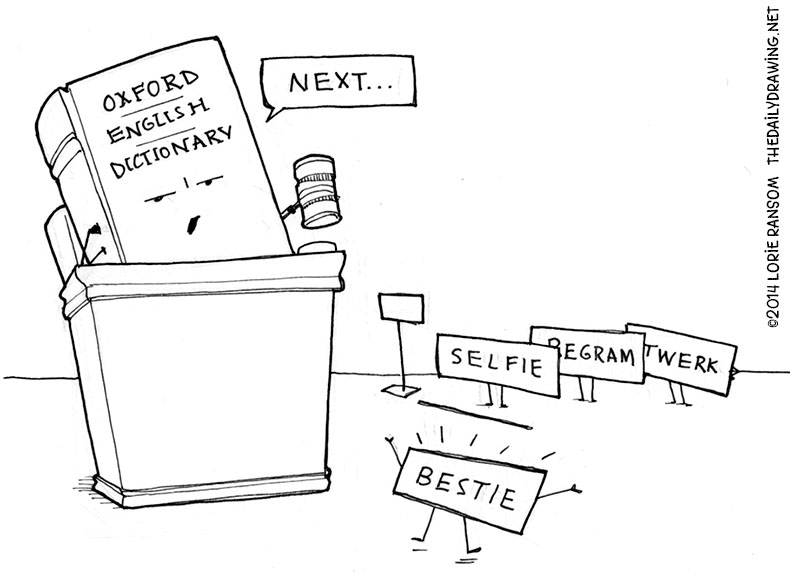 OXFORD
ENGLISH
DICTIONARY
NEXT...
SELFIE
REGRAM
TWERK
BESTIE
©2014 LORIE RANSOM THEDAILYDRAWING.NET